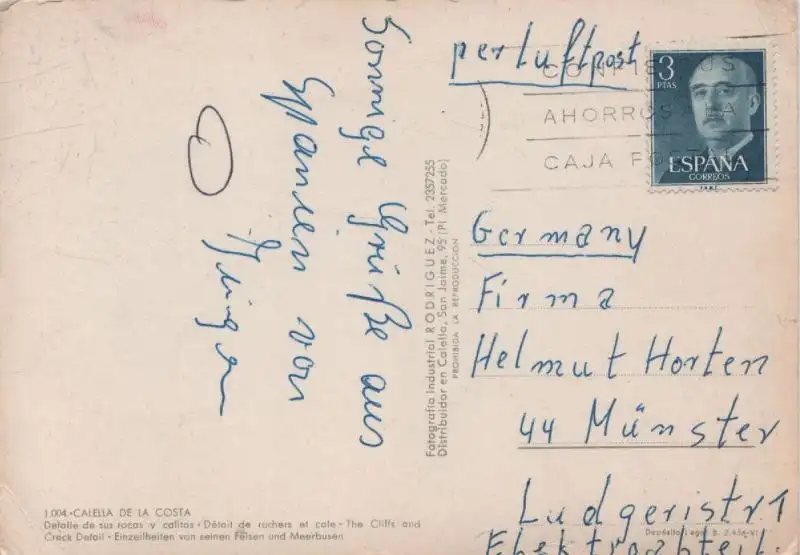 Sonnige Grüße aus
Spanien von
per Luftpost
CONFIE SUS
AHORROS A LA
CAJA POSTAL
3
PTAS
ESPAÑA
CORREOS
Germany
Firma
Helmut Horten
44 Münster
Ludgeristr 1
Fotografía Industrial RODRIGUEZ - Tel. 2357255
Distribuidor en Calella, San Jaime, 95 (Pl. Mercado)
PROHIBIDA LA REPRODUCCION
1.004.-CALELLA DE LA COSTA
Detalle de sus rocas y calitas - Détail de rochers et cale - The Cliffs and
Creck Detail - Einzeilheiten von seinen Felsen und Meerbusen
Depósito Legal B. 2.456-VI